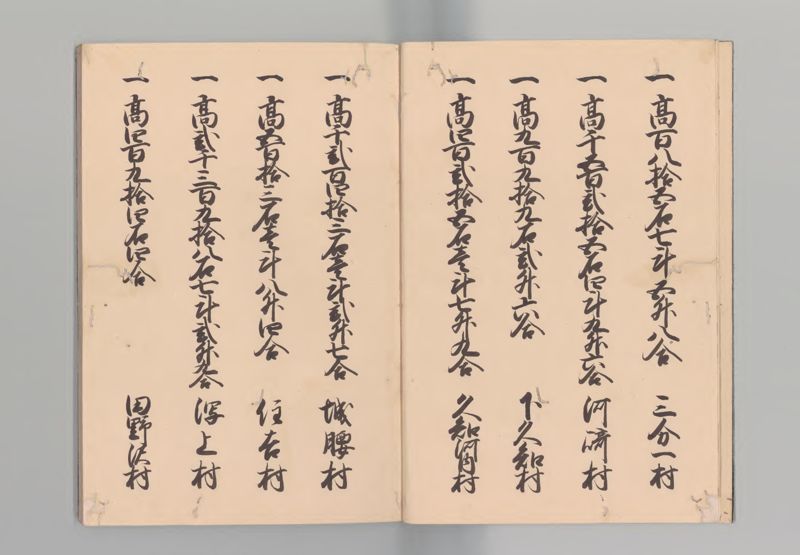 一 高百八拾五石七斗五升八合 三分一村
一 高千五百弐拾五石四斗九升六合 河崎村
一 高九百九拾九石弐升六合 下久知村
一 高四百弐拾五石壱斗七升九合 久知河内村
一 高千弐百四拾三石壱斗弐升七合 城腰村
一 高五百拾三石壱斗八升四合 住吉村
一 高弐千三百九拾八石七斗弐升九合 潟上村
一 高四百九拾四石四合 田野沢村